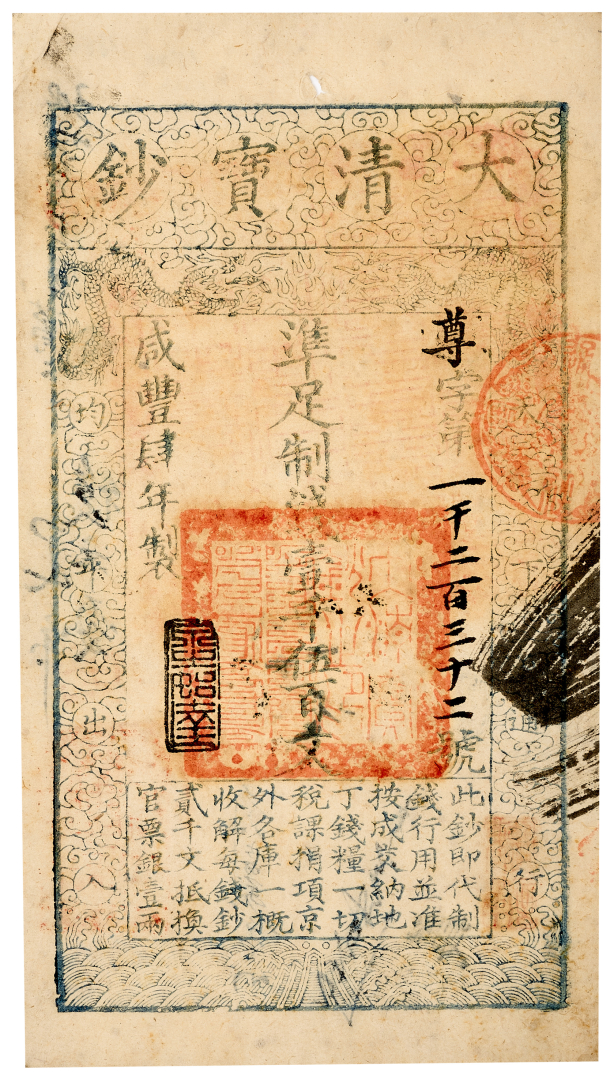 大清寶鈔
尊字第一千二百三十二號
準足制錢壹千伍百文
咸豐肆年製
天下通行
均平出入
此鈔即代制
錢行用並准
按成交納地
丁錢糧一切
稅課捐項京
外各庫一概
收解每錢鈔
貳千文抵換
官票銀壹兩